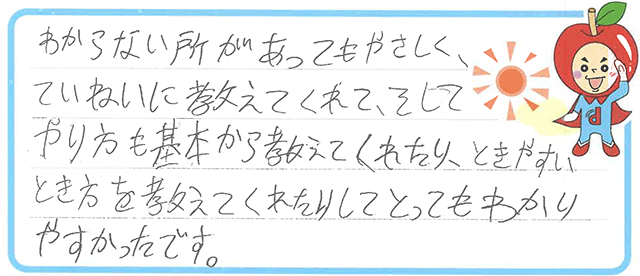 わからない所があってもやさしく、
ていねいに教えてくれて、そして
やり方も基本から教えてくれたり、ときやすい
とき方を教えてくれたりしてとってもわかり
やすかったです。